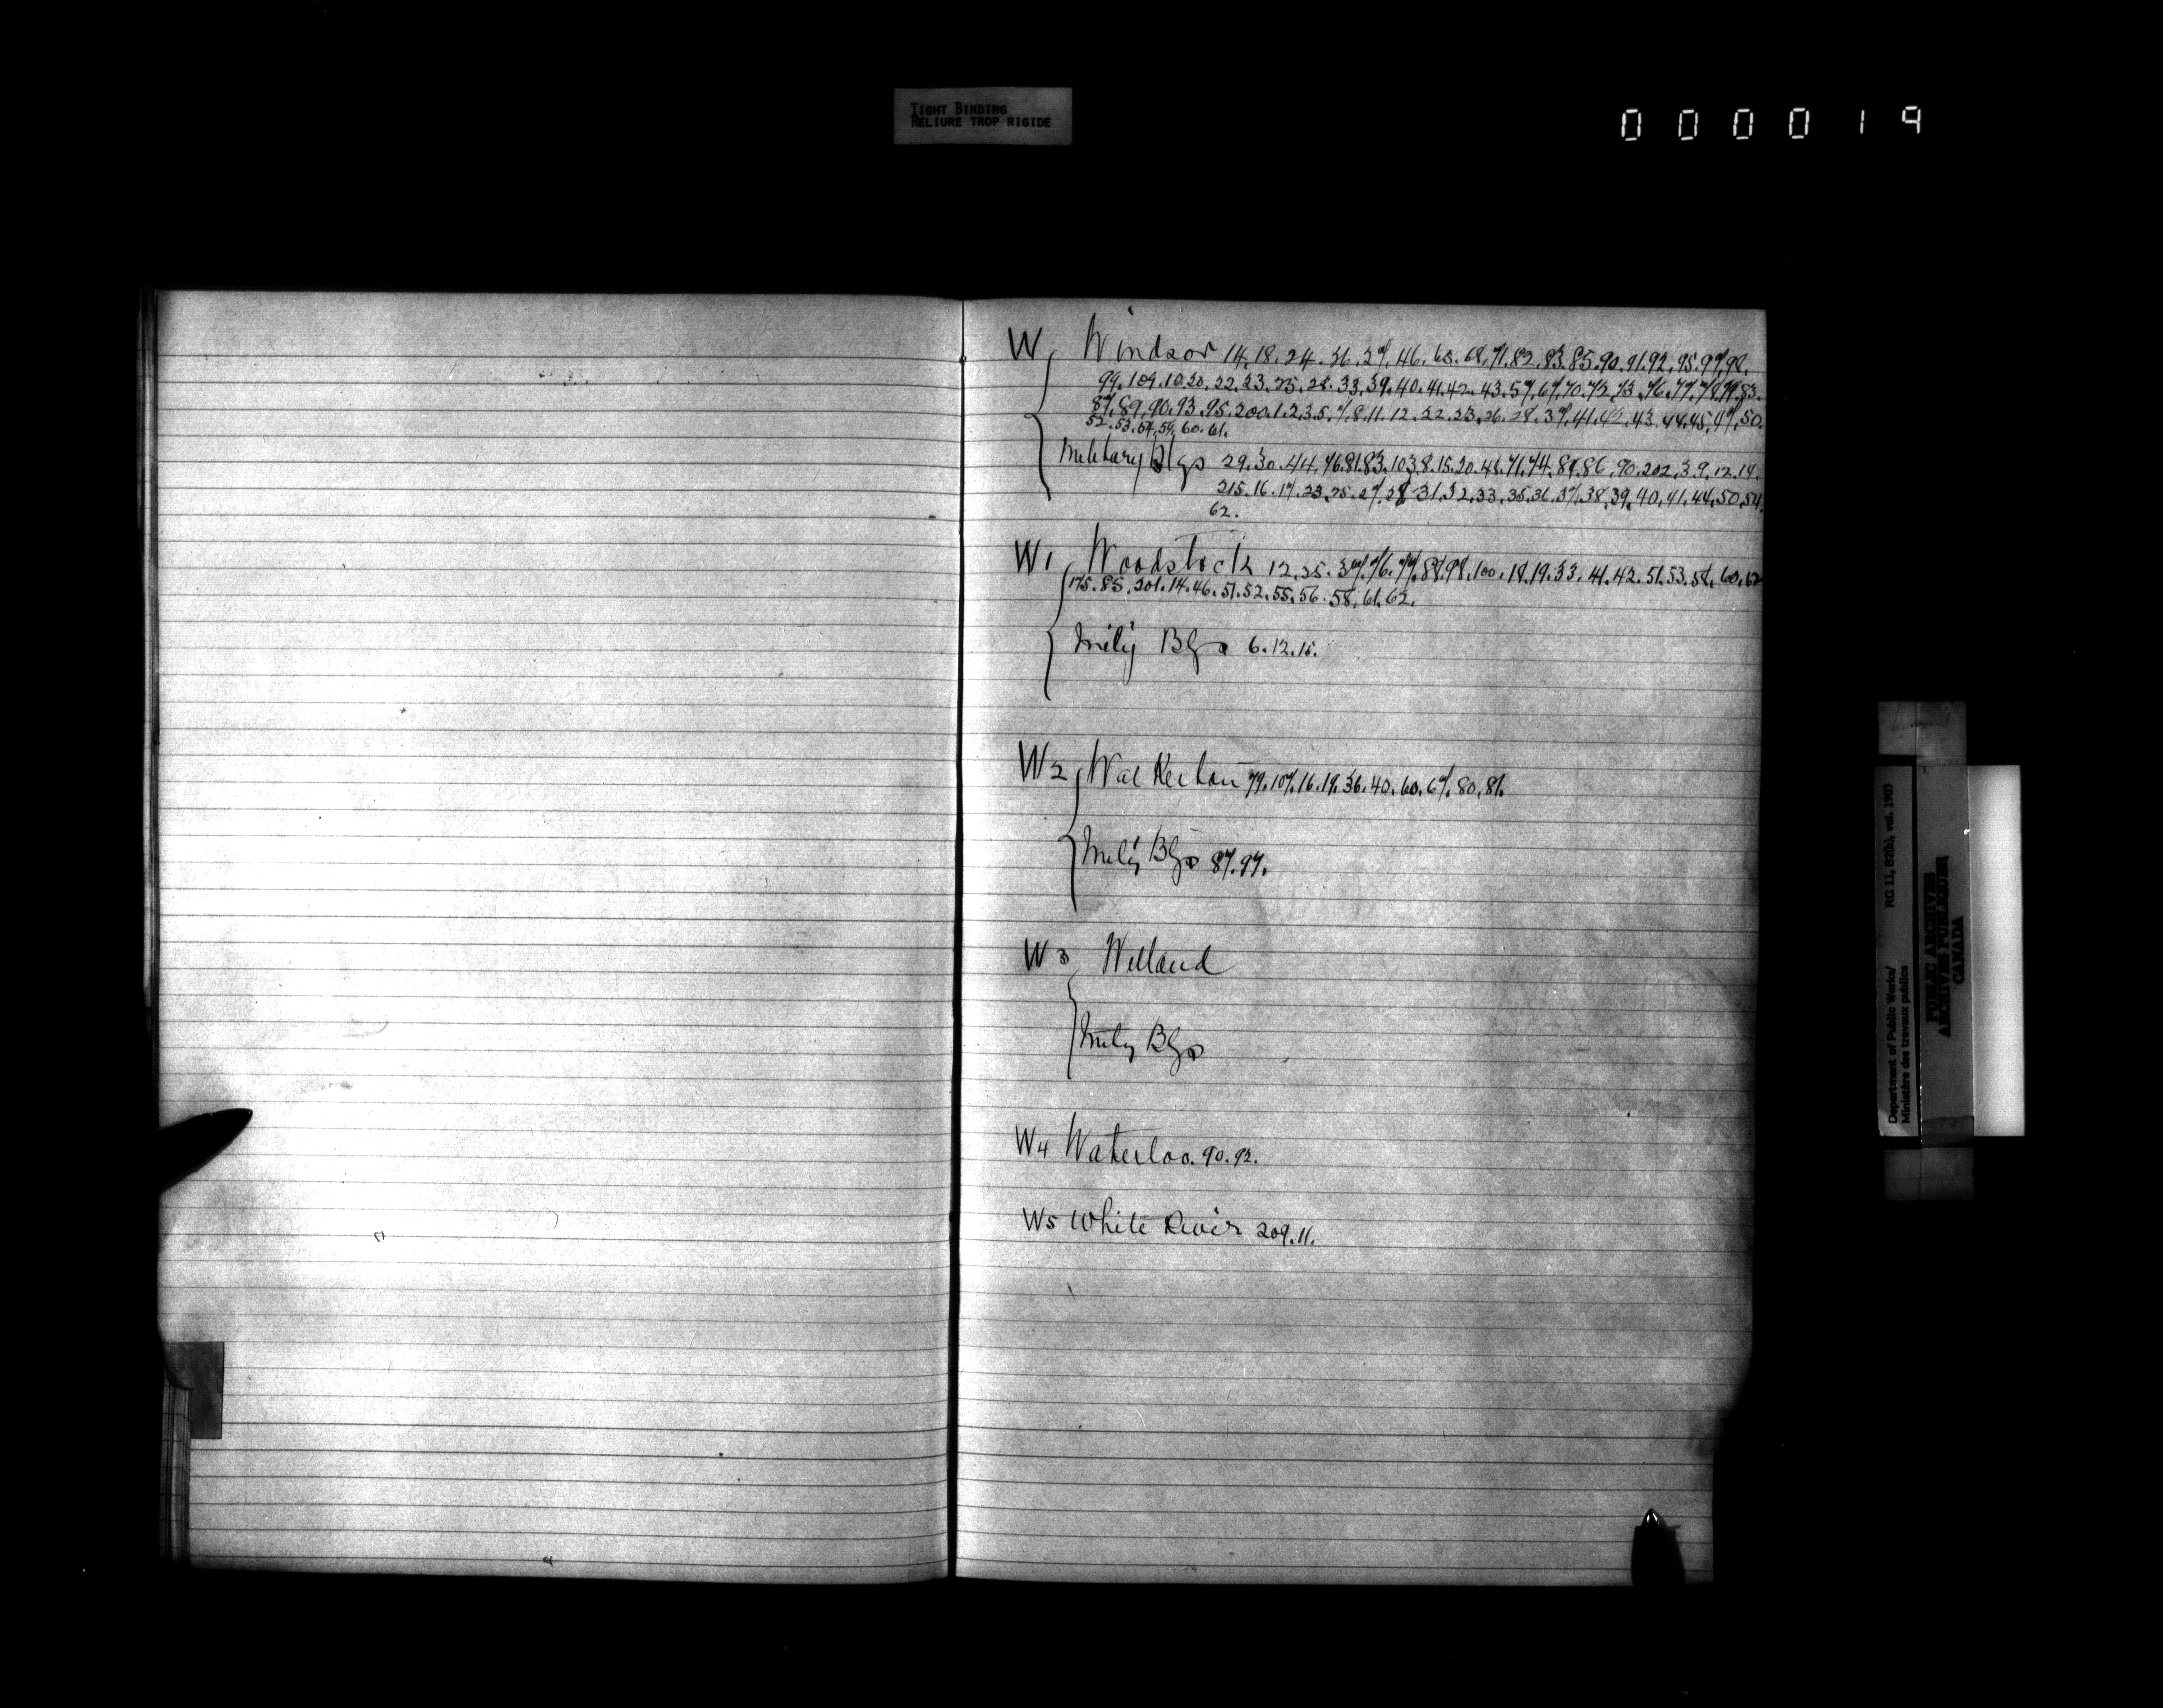 TIGHT BINDING
RELIURE TROP RIGIDE
000019
W Windsor 14.18.24.36.37.46.65.68.71.82.83.85.90.91.92.95.97.98.
99.109.10.20.22.23.25.28.33.39.40.41.42.43.57.67.70.72.73.76.77.78.79.83.
87.89.90.93.95.200.1.2.3.5.7.8.11.12.22.23.26.28.37.41.42.43.44.45.47.50.
52.53.54.59.60.61.
Military Blgs 29.30.44.76.81.83.103.8.15.20.48.71.74.84.86.90.202.3.9.12.14.
215.16.17.23.25.27.28.31.32.33.35.36.37.38.39.40.41.44.50.54.
62.
W1 Woodstock 12.35.37.76.77.88.98.100.18.19.33.41.42.51.53.58.60.62
175.85.201.14.46.51.52.55.56.58.61.62.
Mily Blgs 6.12.15.
W2 Walkerton 79.107.16.19.36.40.60.67.80.81.
Mily Blgs 87.97.
W3 Welland
Mily Blgs
W4 Waterloo. 90.92.
W5 White River 209.11.
Department of Public Works/ RG 11, B2(b), vol. 1903
Ministère des travaux publics
PUBLIC ARCHIVES
ARCHIVES PUBLIQUES
CANADA